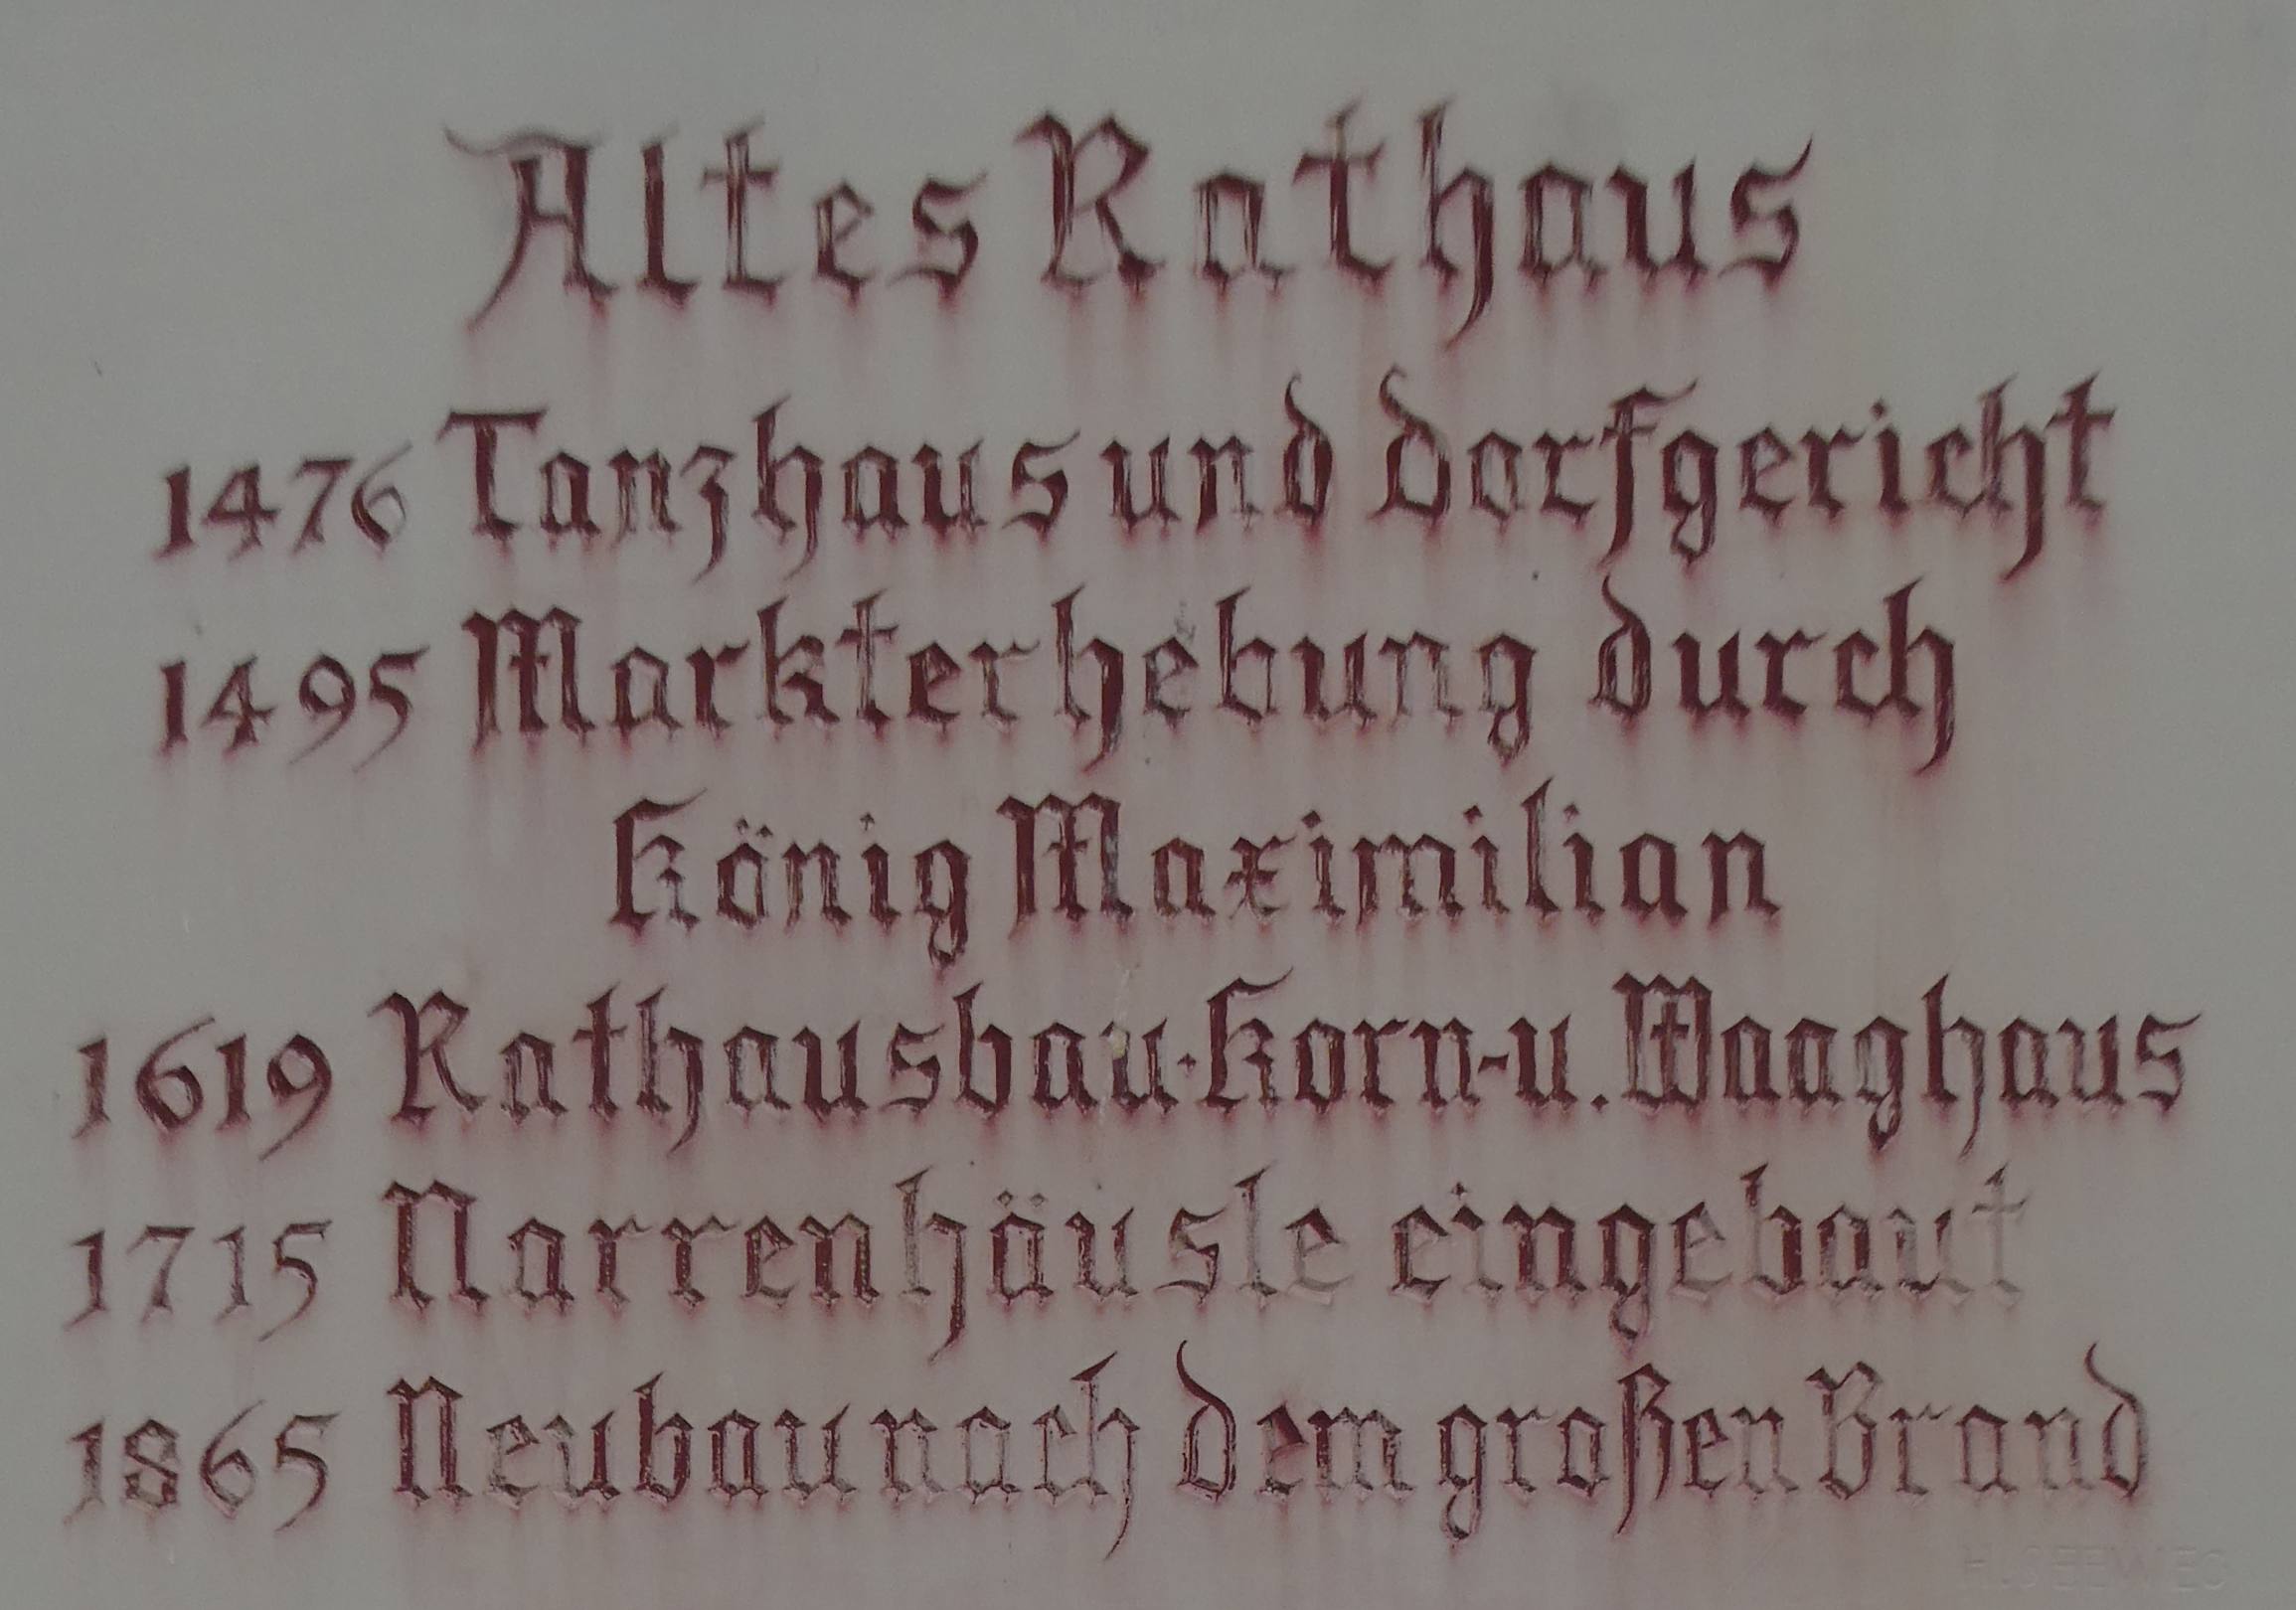 Altes Rathaus
1476 Tanzhaus und Dorfgericht
1495 Markterhebung durch
König Maximilian
1619 Rathausbau·Korn-u. Waaghaus
1715 Narrenhäusle eingebaut
1865 Neubau nach dem großen Brand